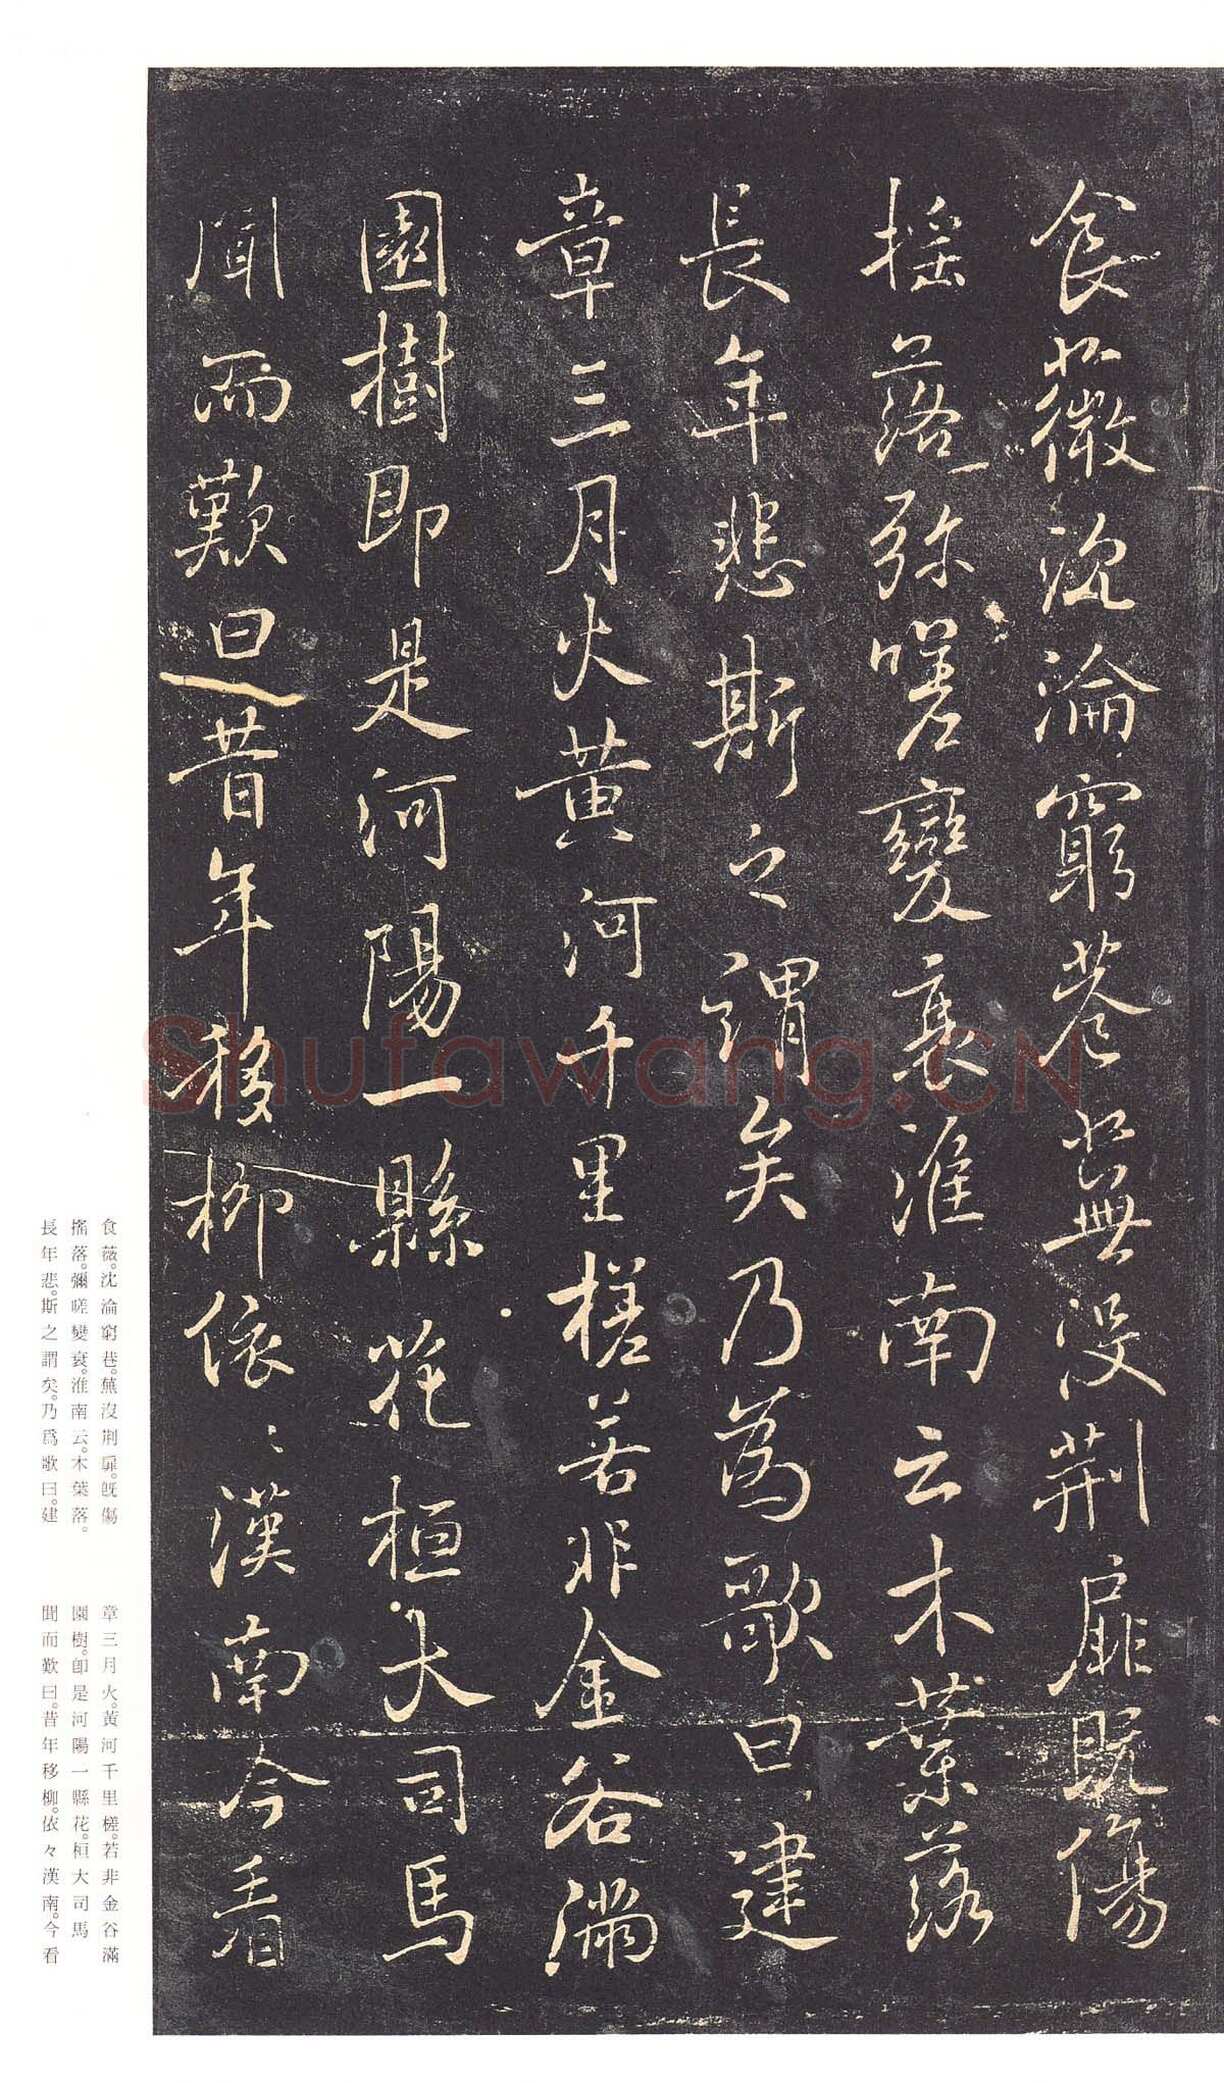 食薇沈淪窮巷蕪没荆扉既傷
搖落弥嗟變衰淮南云木葉落
長年悲斯之謂矣乃為歌曰建
章三月火黄河千里槎若非金谷滿
園樹即是河陽一縣花桓大司馬
聞而歎曰昔年移柳依〻漢南今看
食薇。沈淪窮巷。蕪沒荆扉。既傷
搖落。彌嗟變衰。淮南云。木葉落。
長年悲。斯之謂矣。乃爲歌曰。建
章三月火。黃河千里槎。若非金谷滿
園樹。卽是河陽一縣花。桓大司馬
聞而歎曰。昔年移柳。依々漢南。今看
Shufawang.CN